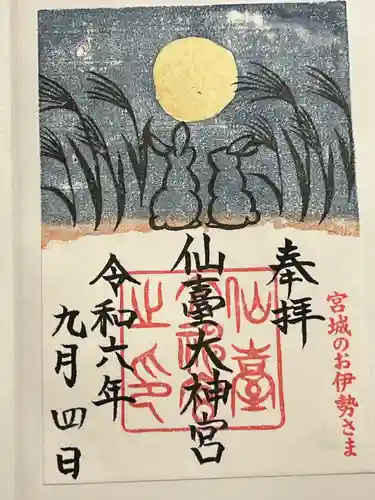 奉拝
宮城のお伊勢さま
仙臺大神宮
令和六年
九月四日